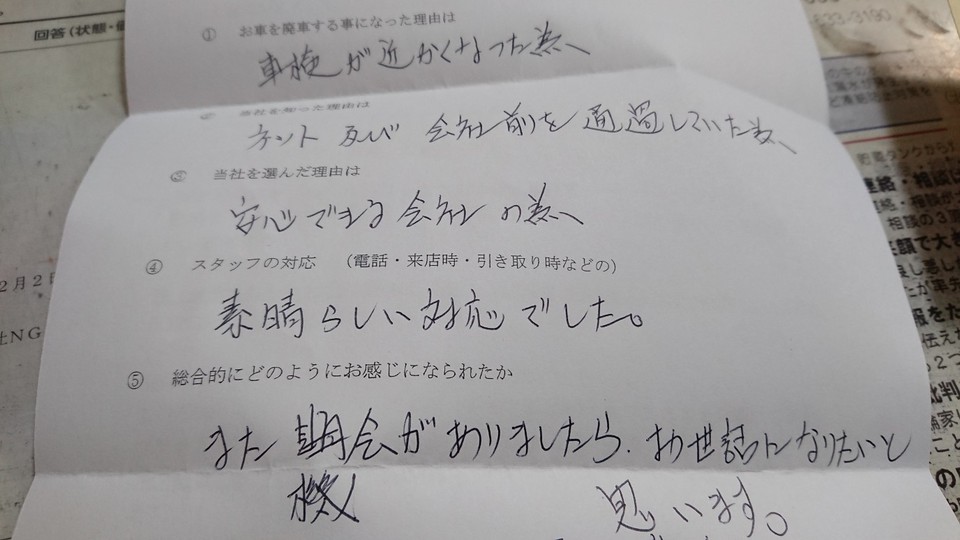 回答(状態・
① お車を廃車する事になった理由は
車検が近かくなった為、
② 当社を知った理由は
ネット及び会社前を通過していた為、
③ 当社を選んだ理由は
安心できる会社の為、
④ スタッフの対応 (電話・来店時・引き取り時などの)
素晴らしい対応でした。
⑤ 総合的にどのようにお感じになられたか
また期会がありましたら、お世話になりたいと
機
思います。
533-3190
貯蓄タンクから
連絡・相談は
絡・相談
相談の3
笑顔で大き
2月2日
社NG